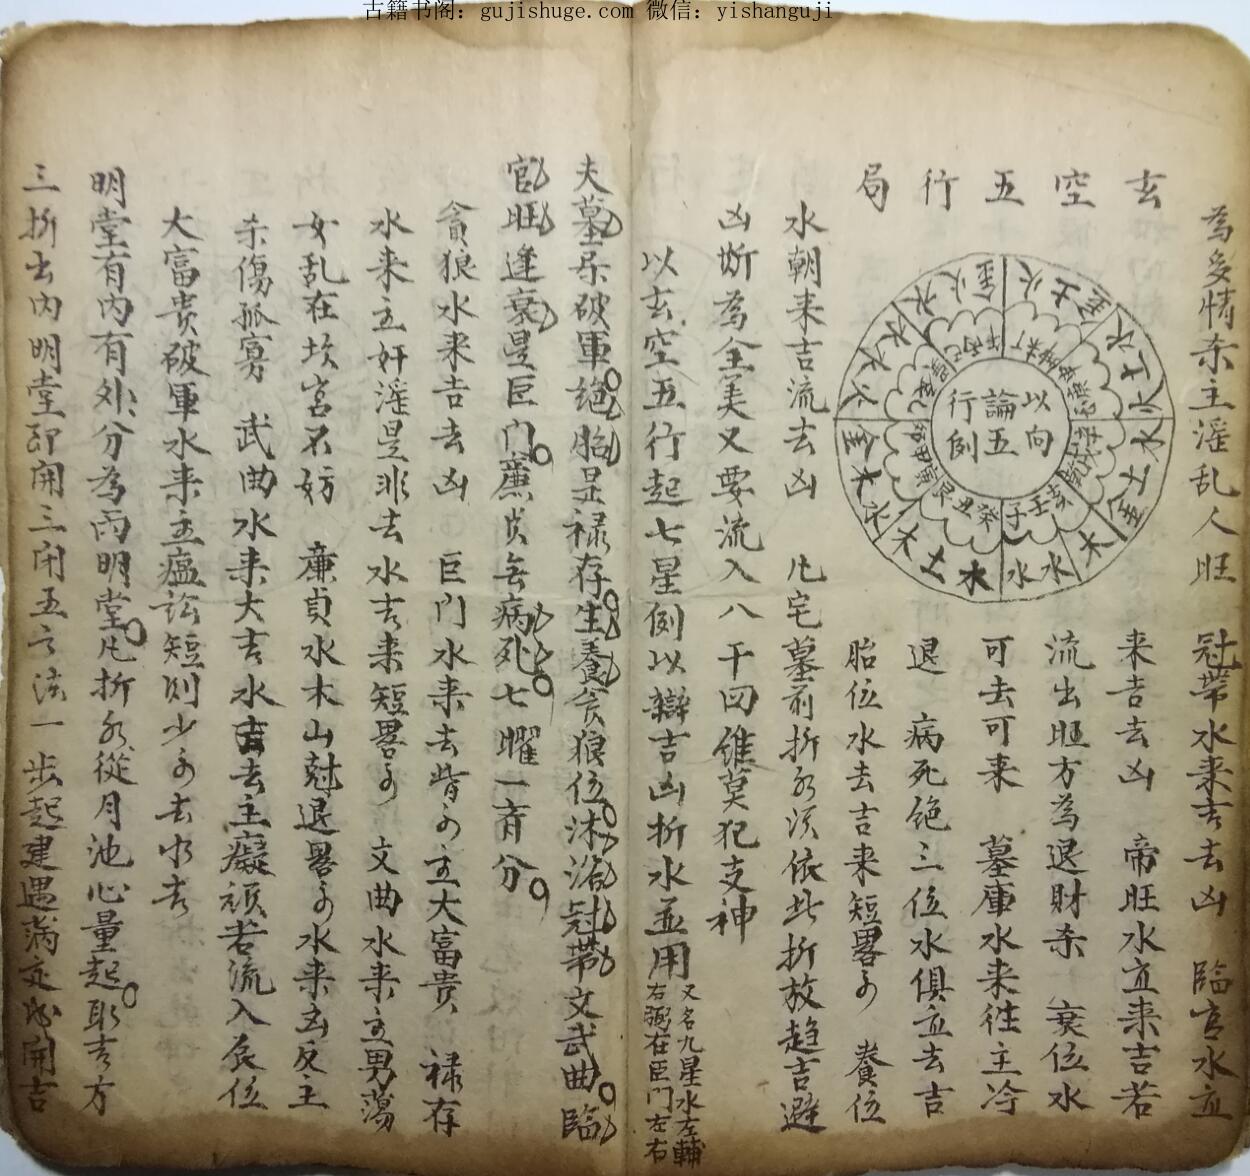 古籍书阁：gujishuge.com 微信：yishanguji
為多情杀主淫乱人旺　冠帶水来吉去凶　臨官水宜
来吉去凶　帝旺水宜来吉若
流出旺方為退財杀　衰位水
可去可来　墓庫水来徃主冷
退　病死绝三位水俱宜去吉
胎位水去吉来短畧可　養位
玄空五行局
以向論五行例
水朝来吉流去凶　凡宅墓前折水須依此折放趋吉避
凶断為全美又要流入八干四維莫犯支神
以玄空五行起七星例以辯吉凶折水並用
又名九星水左輔
右弼在巨門左右
夫墓杀破軍绝胎是禄存生養貪狼位沐浴冠帶文武曲臨
官旺逢衰是巨门廉貞病死七曜一斉分
貪狼水来吉去凶　巨門水来去皆可主大富贵　禄存
水来主奸淫是非去水吉来短畧可　文曲水来主男荡
女乱在坎宮不妨　廉貞水木山尅退畧可水来凶反主
杀傷孤寡　武曲水来大吉水去主癡頑若流入艮位
大富贵破軍水来主瘟訟短则少可去水吉
明堂有内有外分為两明堂凡折水從月池心量起取吉方
三折出内明堂即開三閉五之法一步起建遇满定成開吉